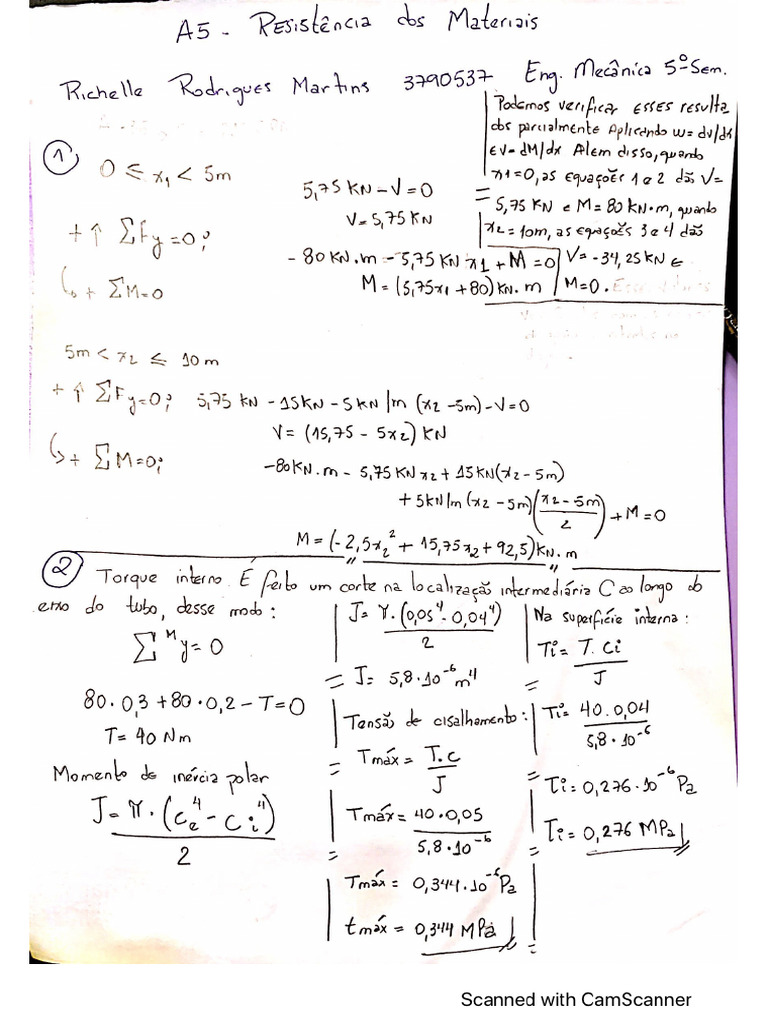 A5 - Resistência dos Materiais
Richelle Rodrigues Martins 3790537 Eng. Mecânica 5º Sem.
Podemos verificar esses resulta
dos parcialmente Aplicando w = dv/dx
e V = dM/dx Alem disso, quando
x1=0, as equações 1 e 2 dão V=
5,75 KN e M= 80 KN·m, quando
x2=10m, as equações 3 e 4 dão
V= -34,25 KN e
M=0.
1
0 ≤ x1 < 5m
5,75 KN - V = 0
V= 5,75 KN
+ ↑ ΣFy = 0;
- 80 KN.m - 5,75 KN x1 + M = 0
↳ + ΣM=0
M= (5,75x1 + 80) KN. m
5m < x2 ≤ 10m
+ ↑ ΣFy=0; 5,75 KN - 15KN - 5KN/m (x2 - 5m) - V=0
V= (15,75 - 5x2) KN
↳ + ΣM=0;
-80KN.m - 5,75 KN x2 + 15KN(x2 - 5m)
+ 5KN/m (x2 - 5m) (x2 - 5m / 2) + M = 0
M= (-2,5x2² + 15,75x2 + 92,5) KN. m
2 Torque interno. É feito um corte na localização intermediária C ao longo do
eixo do tubo, desse modo:
ΣMy=0
80·0,3 + 80·0,2 - T=0
T= 40 Nm
Momento de inércia polar
J= π·(ce⁴ - ci⁴) / 2
J= π·(0,05⁴ - 0,04⁴) / 2
= J= 5,8·10⁻⁶ m⁴
Tensão de cisalhamento:
= Tmáx = T.c / J
Tmáx = 40·0,05 / 5,8·10⁻⁶
Tmáx = 0,344·10⁻⁶ Pa
tmáx = 0,344 MPa
Na superfície interna:
Ti = T. Ci / J
Ti = 40.0,04 / 5,8·10⁻⁶
Ti = 0,276·10⁻⁶ Pa
Ti = 0,276 MPa
Scanned with CamScanner